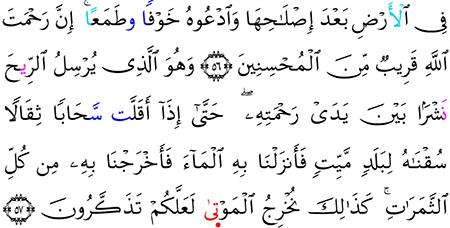 فِي ٱلْأَرْضِ بَعْدَ إِصْلَـٰحِهَا وَٱدْعُوهُ خَوْفًا وطَمَعًاۚ إِنَّ رَحْمَتَ
ٱللَّهِ قَرِيبٌ مِّنَ ٱلْمُحْسِنِينَ ۝٥٦ وَهُوَ ٱلَّذِى يُرْسِلُ ٱلرِّيحَ
نَشْرَۢا بَيْنَ يَدَىْ رَحْمَتِهِۦۖ حَتَّىٰٓ إِذَآ أَقَلَّت سَّحَابًا ثِقَالًا
سُقْنَـٰهُ لِبَلَدٍ مَّيِّتٍ فَأَنزَلْنَا بِهِ ٱلْمَآءَ فَأَخْرَجْنَا بِهِۦ مِن كُلِّ
ٱلثَّمَرَٰتِۚ كَذَٰلِكَ نُخْرِجُ ٱلْمَوْتَىٰ لَعَلَّكُمْ تَذَكَّرُونَ ۝٥٧